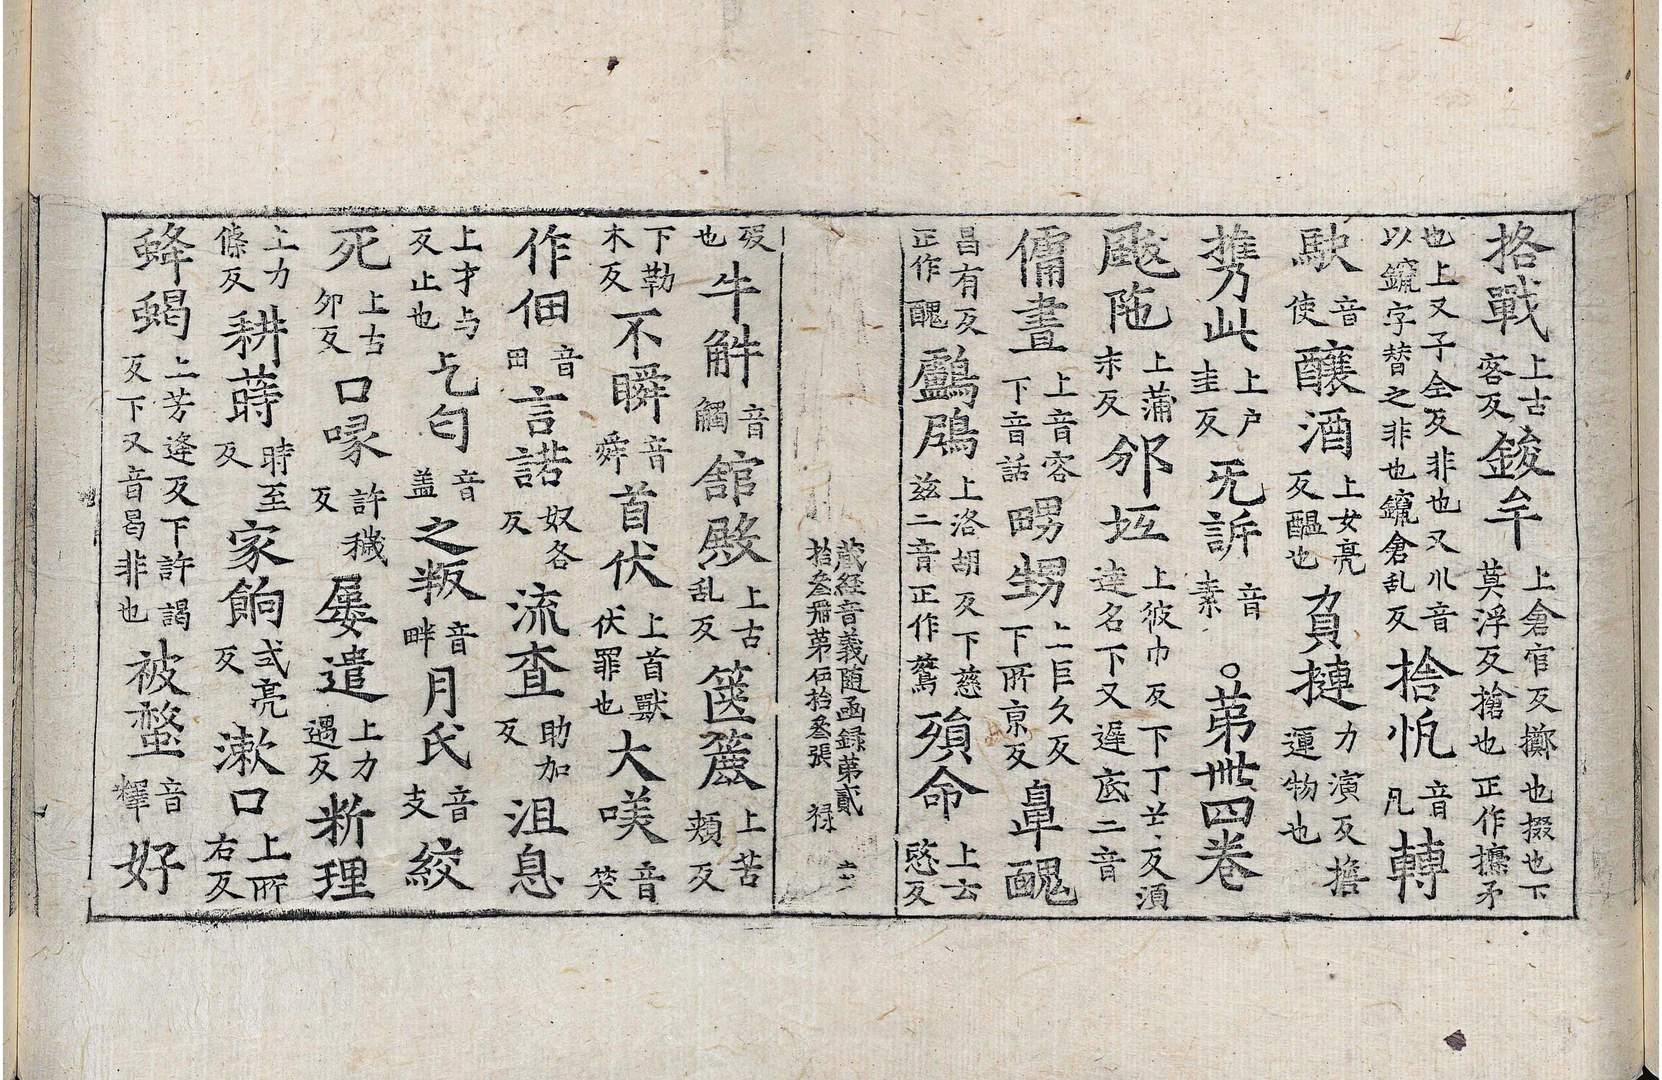 格戰上古客反鋑牟上倉官反擲也掇也下莫浮反搶也正作攗矛
也上又子全反非也又㕕音以鑹字替之非也鑹倉乱反捨忛音凡轉
馱音使釀酒上女亮反醖也負摙力演反擔運物也
携此上户圭反旡訴音素○第丗四卷
颰陁上蒲末反邠坻上彼巾反下丁兰反湏達名下又遲底二音
傭畫上音容下音話甥甥上巨久反下所京反鼻醜
昌有反正作醜鸕鶿上洛胡反下慈兹二音正作鶿殞命上云愍反
藏經音義随函録第貳拾叁冊第伍拾叁張 禄
反也牛觧音觸舘殿上古乱反篋簏上苦頰反
下勒木反不瞬音舜首伏上首獸反伏罪也大𠴕音笑
作佃音田言諾奴各反流查助加反沮息
上才与反止也乞匂音盖之叛音畔月氏音支絞
死上古卯反口喙許穢反屡遣上力遇反断理
上力條反耕蒔時至反家餉式亮反漱口上所右反
蜂蝎上芳逢反下許謁反下又音曷非也被螫音釋好